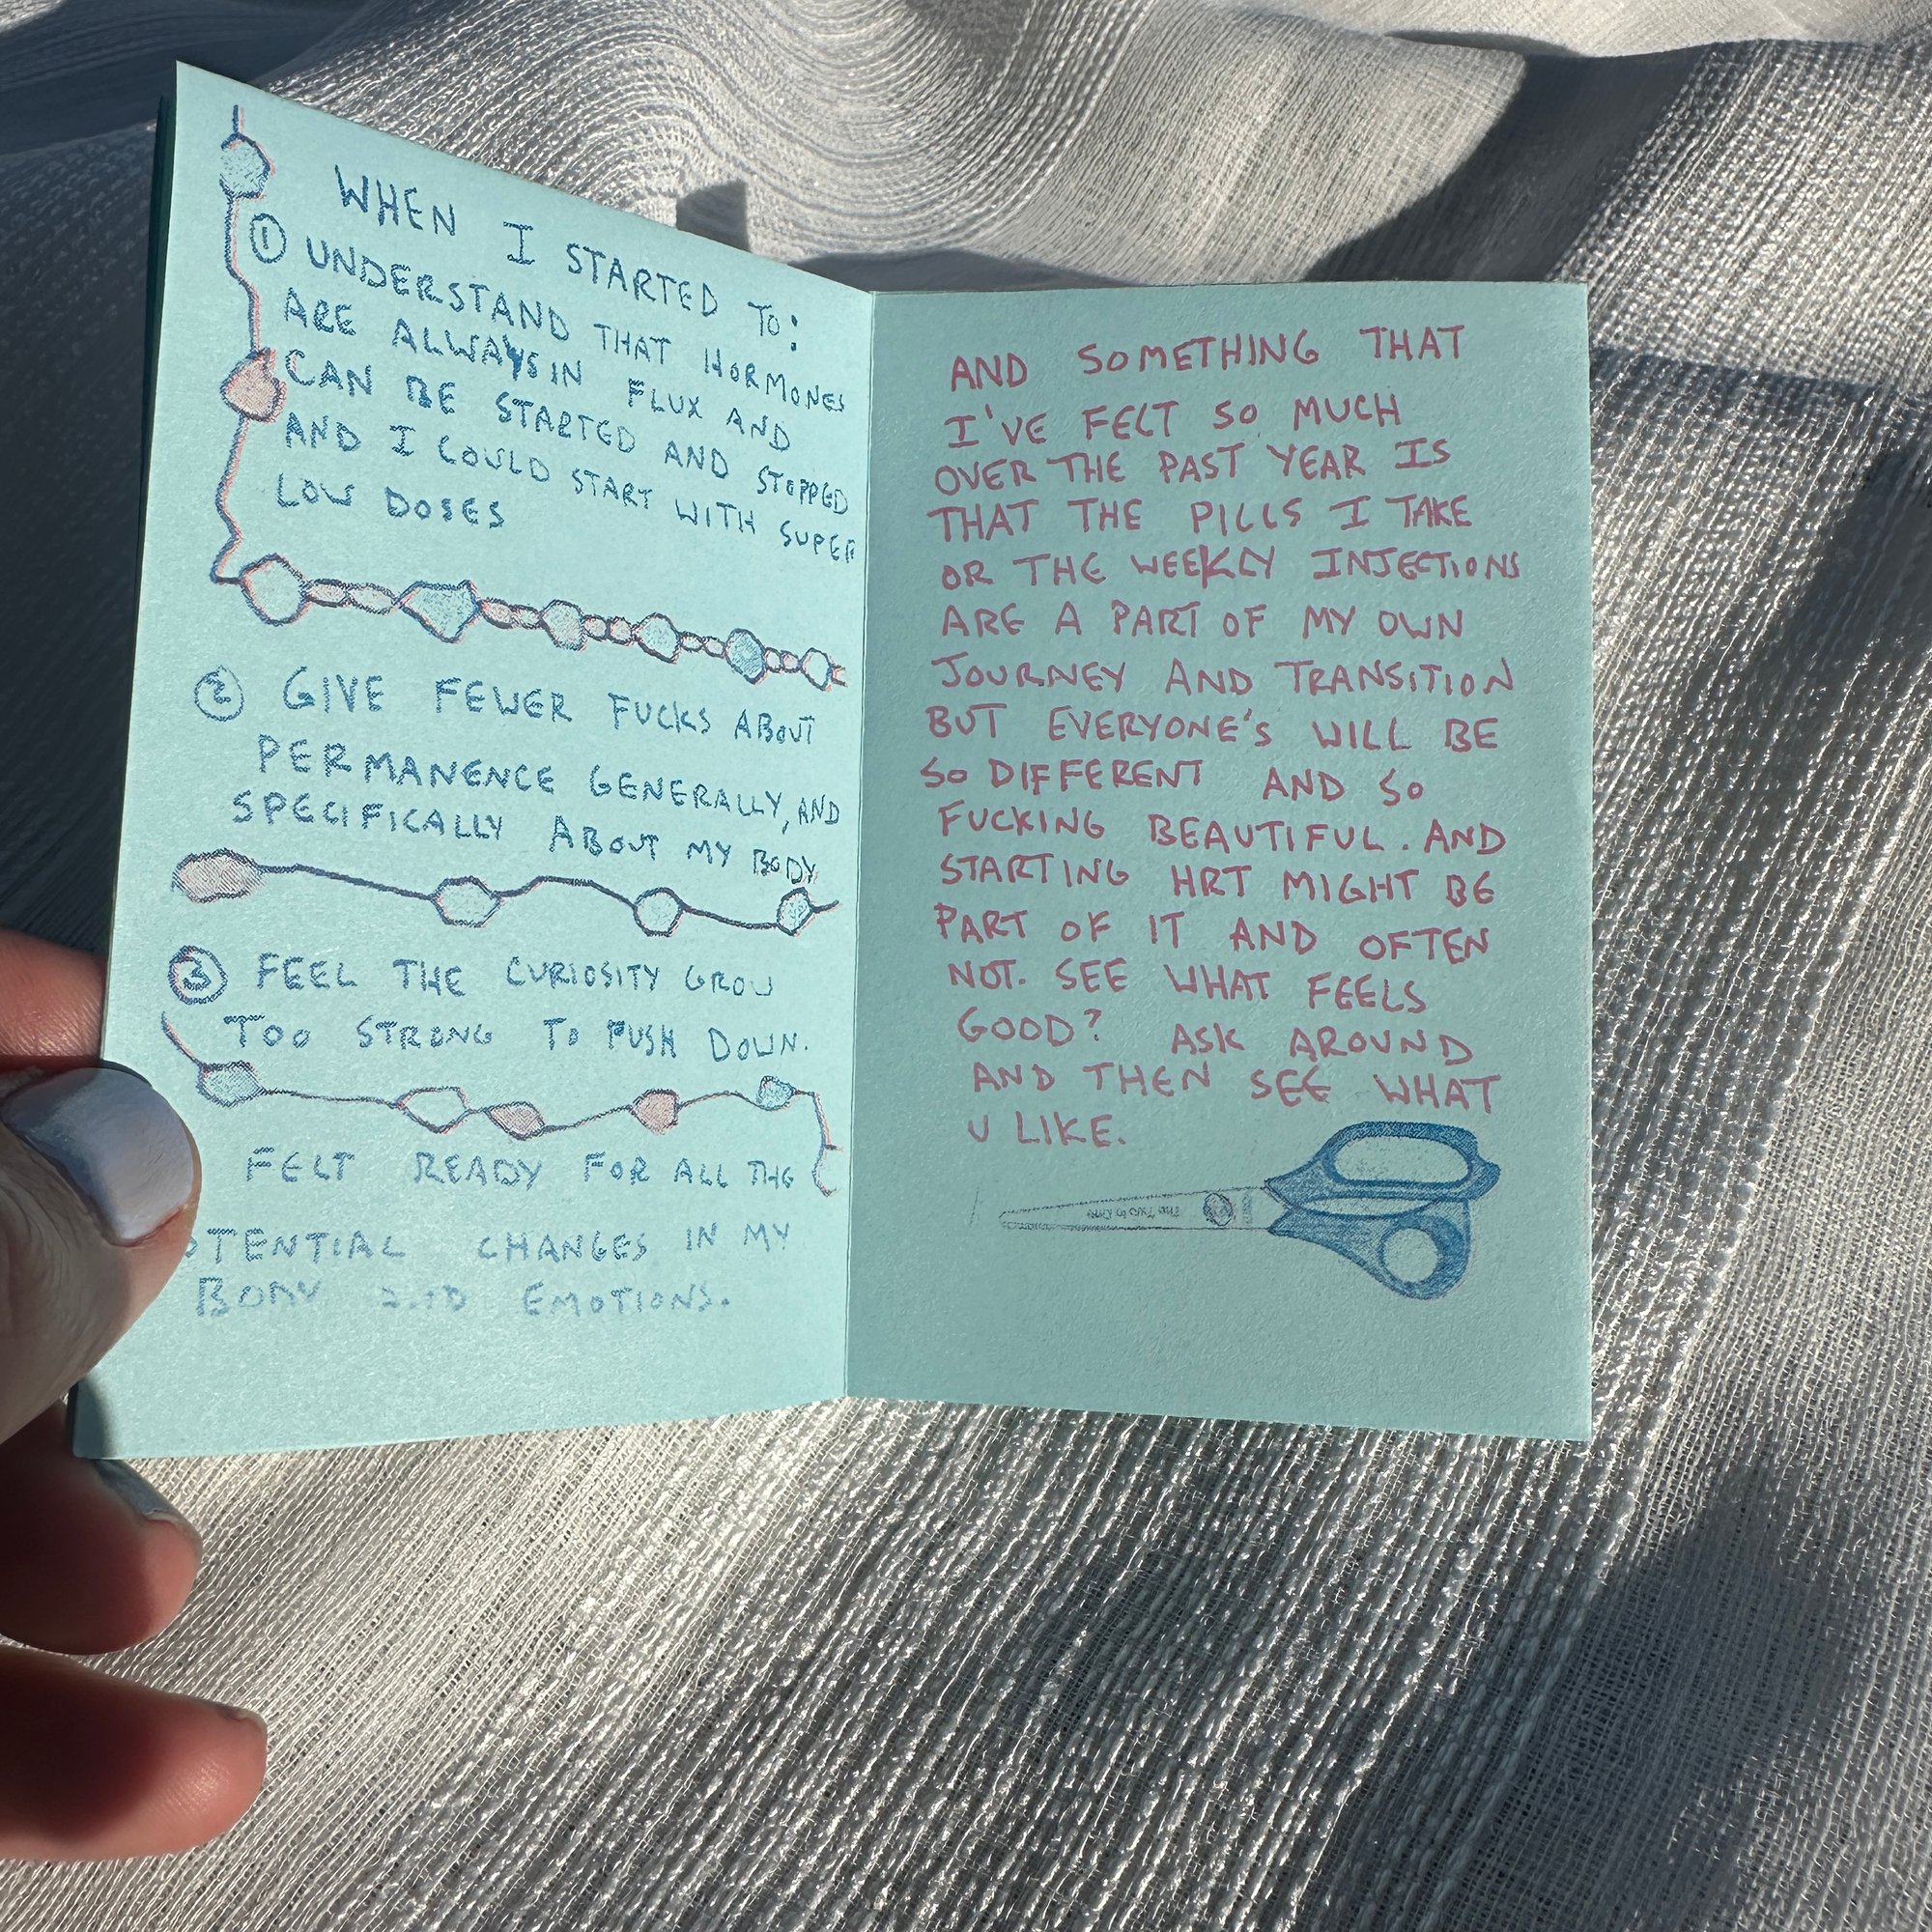 WHEN I STARTED TO:
① UNDERSTAND THAT HORMONES
ARE ALWAYS IN FLUX AND
CAN BE STARTED AND STOPPED
AND I COULD START WITH SUPER
LOW DOSES
② GIVE FEWER FUCKS ABOUT
PERMANENCE GENERALLY, AND
SPECIFICALLY ABOUT MY BODY
③ FEEL THE CURIOSITY GROW
TOO STRONG TO PUSH DOWN.
FELT READY FOR ALL THE
OTENTIAL CHANGES IN MY
BODY AND EMOTIONS.
AND SOMETHING THAT
I'VE FELT SO MUCH
OVER THE PAST YEAR IS
THAT THE PILLS I TAKE
OR THE WEEKLY INJECTIONS
ARE A PART OF MY OWN
JOURNEY AND TRANSITION
BUT EVERYONE'S WILL BE
SO DIFFERENT AND SO
FUCKING BEAUTIFUL. AND
STARTING HRT MIGHT BE
PART OF IT AND OFTEN
NOT. SEE WHAT FEELS
GOOD? ASK AROUND
AND THEN SEE WHAT
U LIKE.